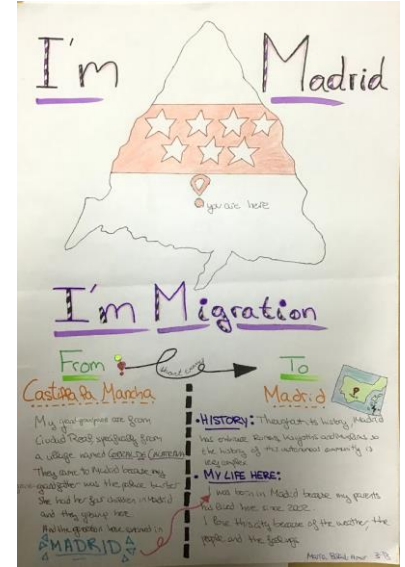 I'm Madrid
you are here
I'm Migration
From
To
Castilla la Mancha
Madrid
My great-grandparents are from
Ciudad Real, specifically from
a village named
They came to Madrid because my
grandfather was the police, but her
She had her four children in Madrid
and they grew up here
And the generation have survived in
MADRID
• HISTORY: its history, Madrid
has
the history of this autonomous community is
very complex
• MY LIFE HERE:
I was born in Madrid because my parents
has lived here since 2002.
I love this city because of the weather, the
people and the feelings